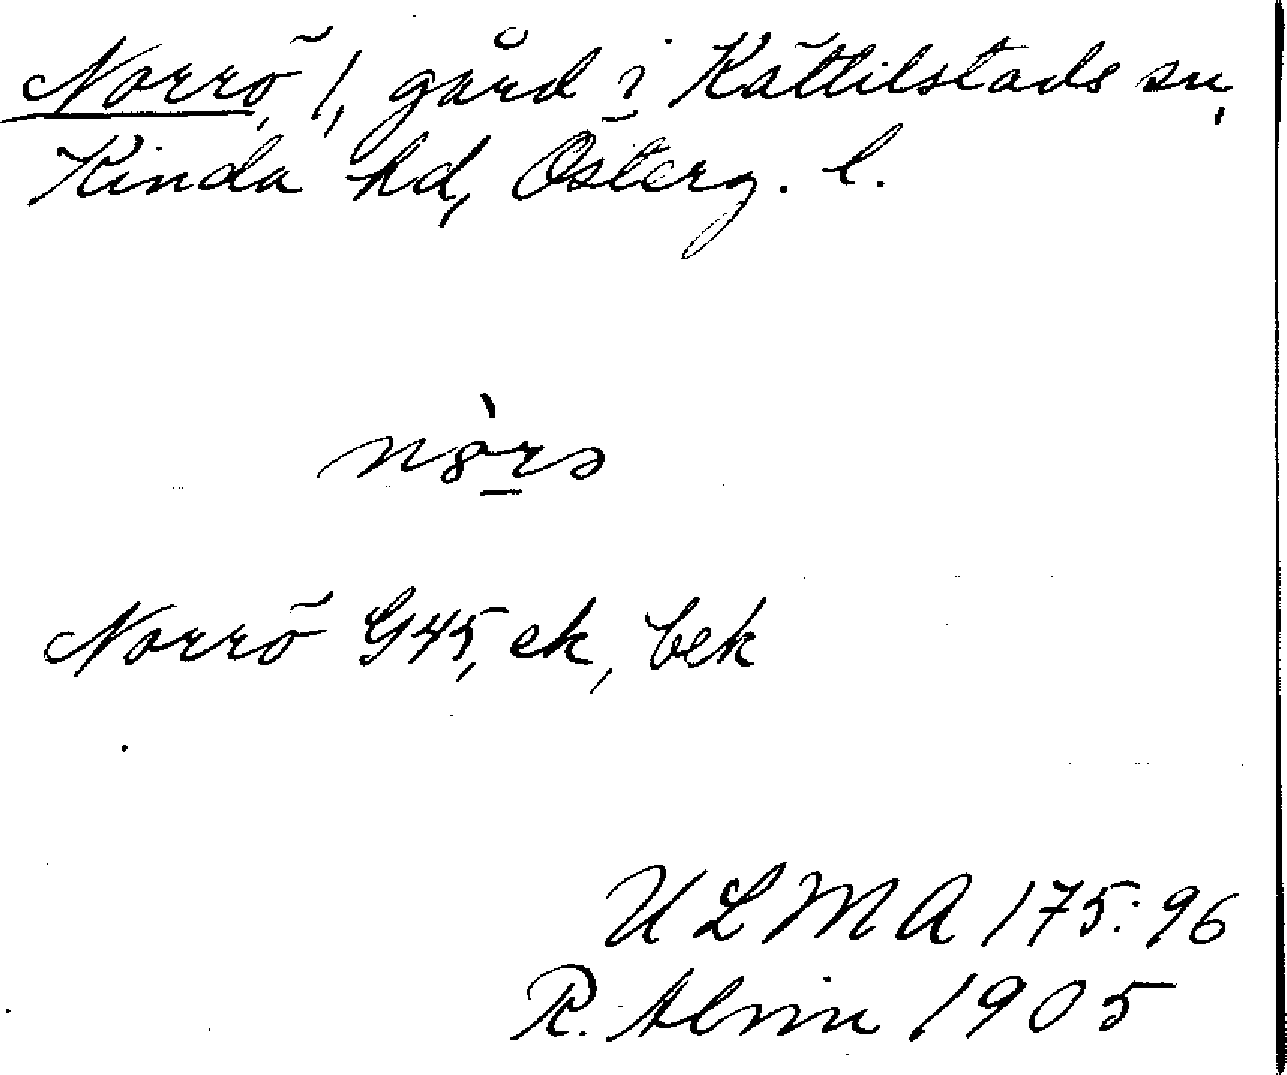 Norrö, 1, gård i Kättilstads sn,
Kinda hd, Österg. l.
Norrö G45, ek, bek
ULMA 175:96
R. Alvin 1905